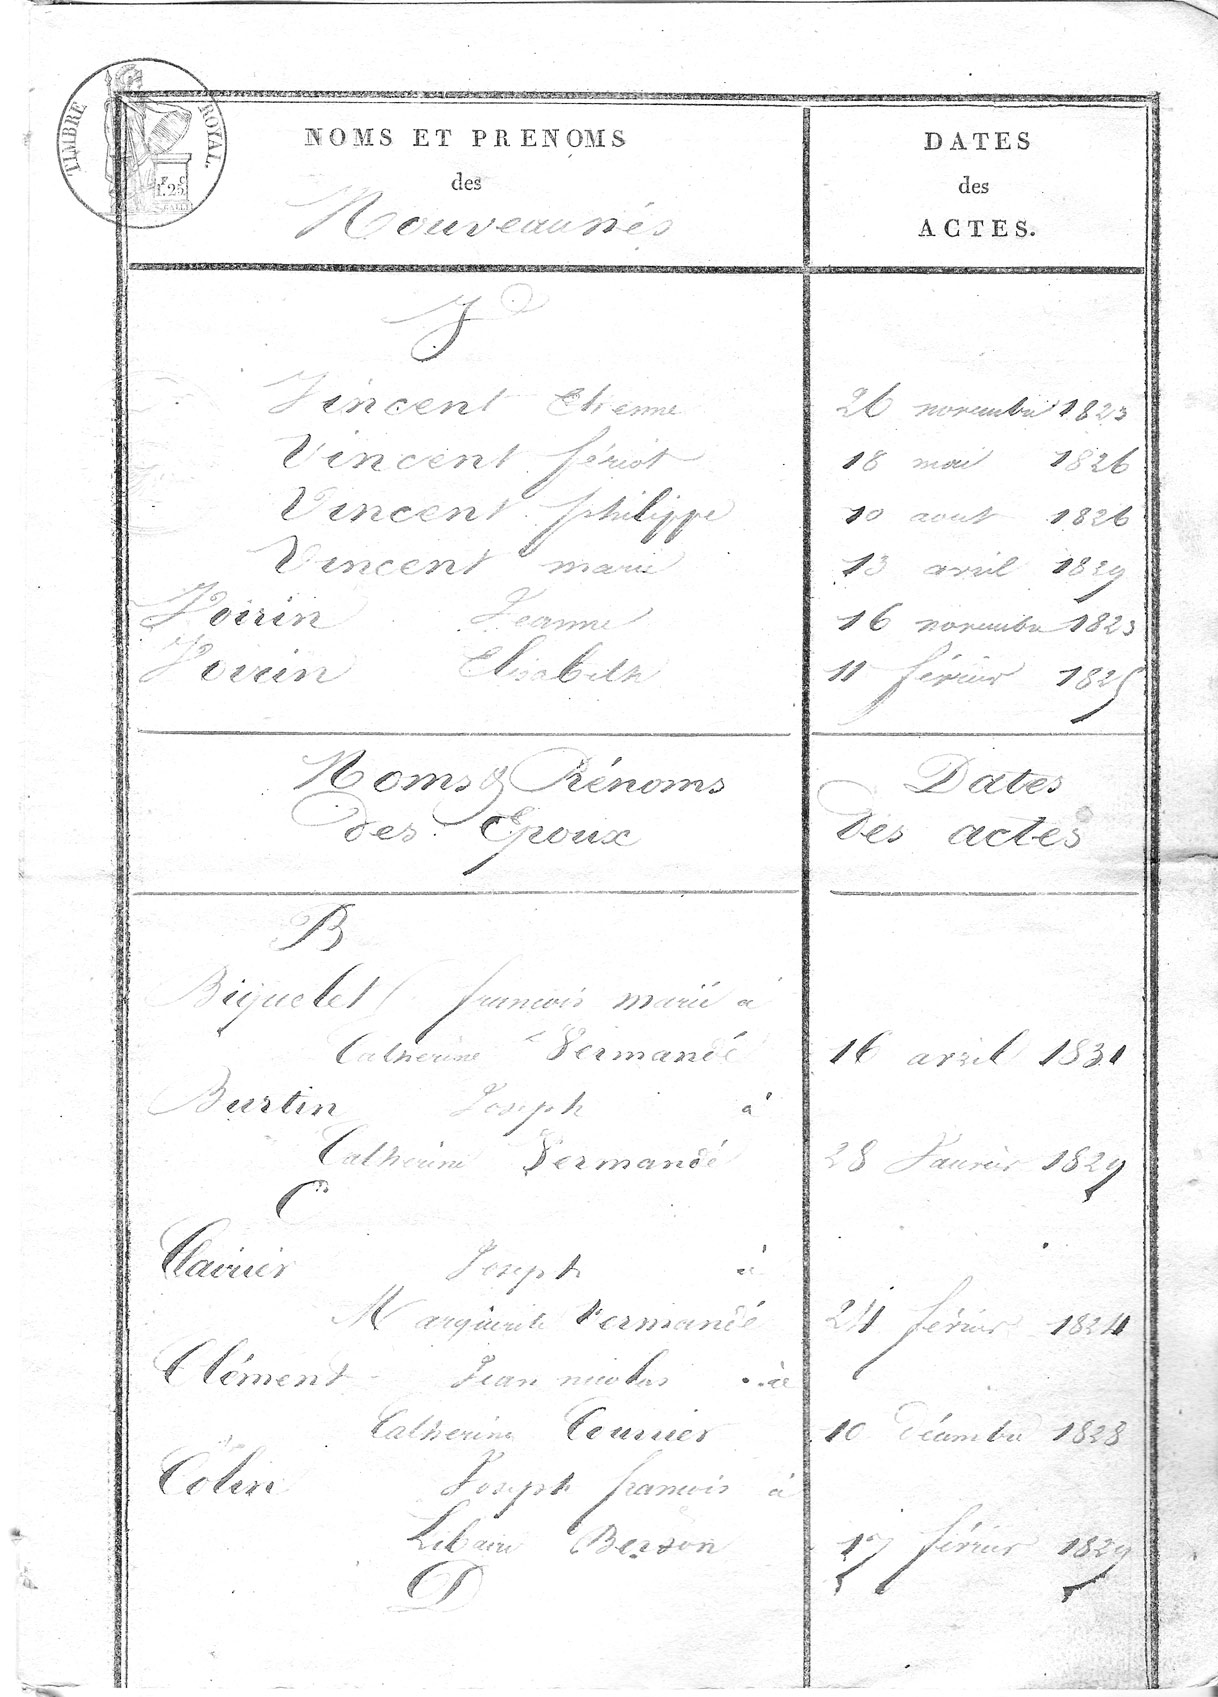 TIMBRE ROYAL.
1.25
NOMS ET PRENOMS
des
Nouveaunés
DATES
des
ACTES.
V
Vincent Etienne 26 novembre 1823
Vincent fériot 18 mai 1826
Vincent philippe 10 aout 1826
Vincent marie 13 avril 1829
Voirin Jeanne 16 novembre 1823
Voirin Elisabeth 11 février 1825
Noms & Prénoms Dates
des Epoux des actes
B
Biquelet francois marié à
Catherine Vermandé 16 avril 1831
Burtin Joseph à
Catherine Vermandé 28 Janvier 1829
C
Clavier Joseph à
Marguerite Vermandé 24 février 1824
Clément Jean nicolas à
Catherine 10 décembre 1828
Colin Joseph francois à
Libaire Berson 17 février 1829
D